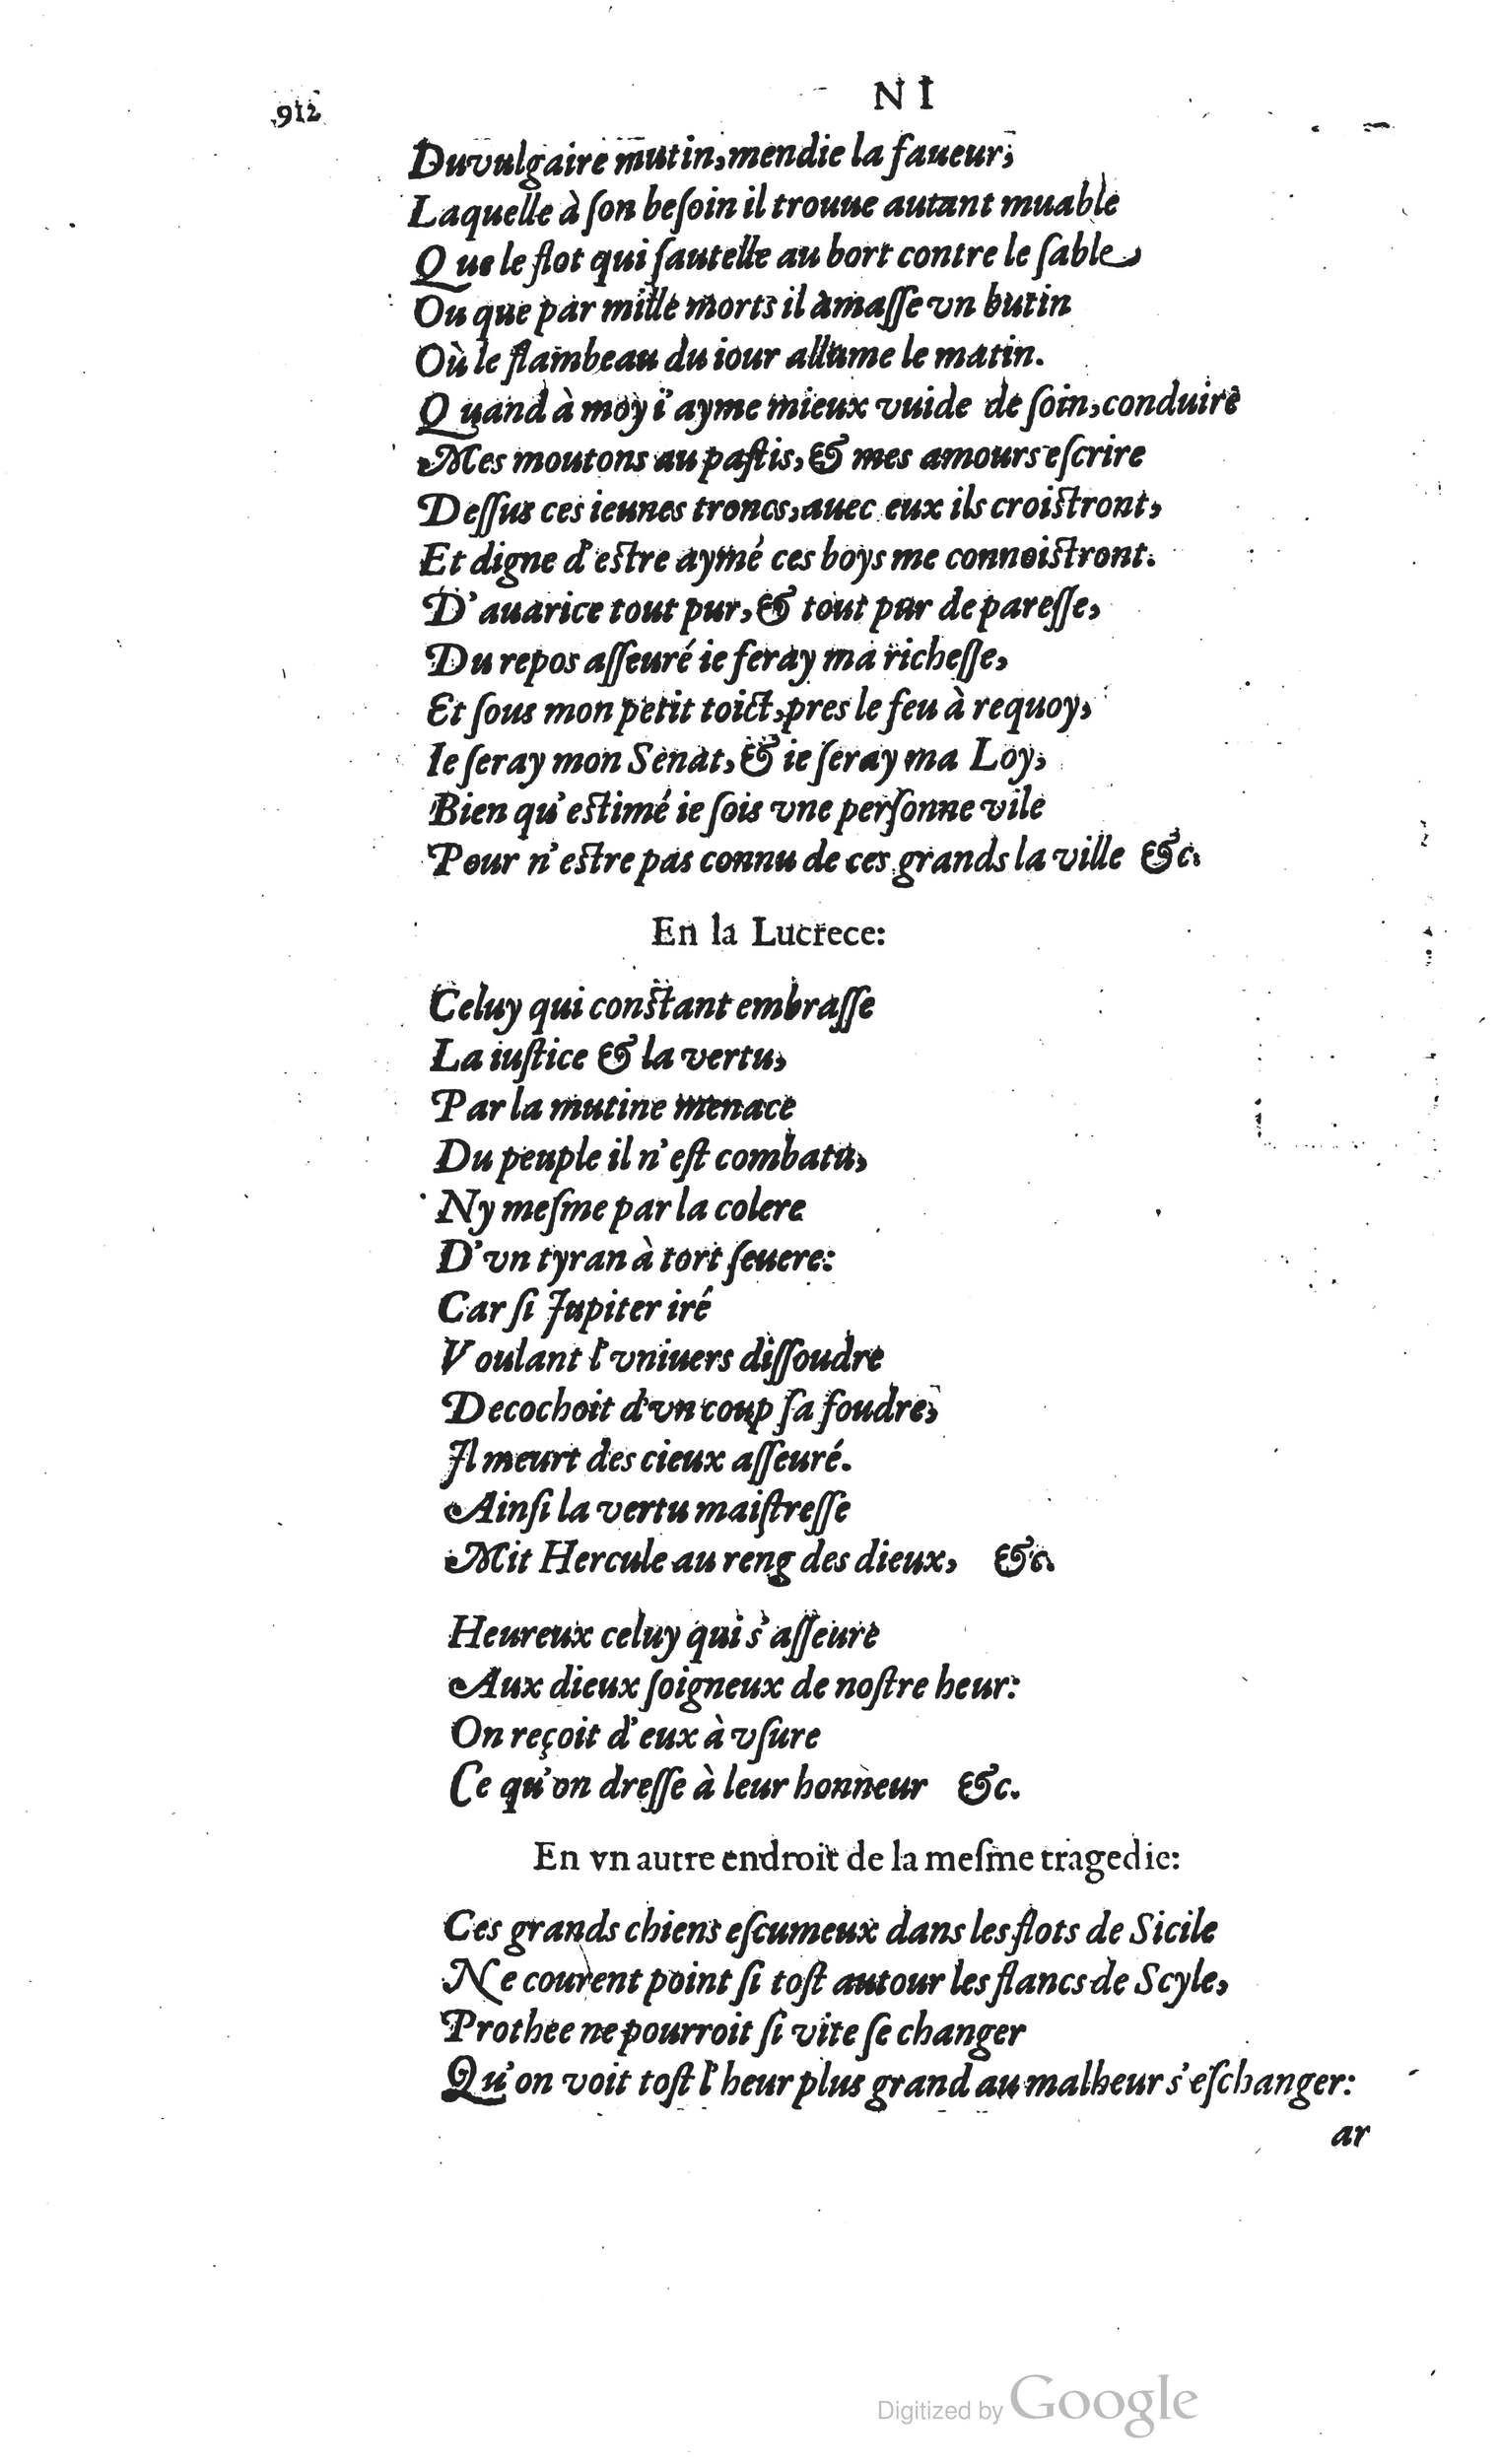 912
NI
Du vulgaire mutin, mendie la faueur,
Laquelle à ſon beſoin il trouue autant muable
Que le flot qui ſautelle au bort contre le ſable,
Ou que par mille morts il amaſſe vn butin
Où le flambeau du iour allume le matin.
Quand à moy i'ayme mieux vuide de ſoin, conduire
Mes moutons au paſtis, & mes amours eſcrire
Deſſus ces ieunes troncs, auec eux ils croiſtront,
Et digne d'eſtre aymé ces boys me connoiſtront.
D'auarice tout pur, & tout pur de pareſſe,
Du repos aſſeuré ie feray ma richeſſe,
Et ſous mon petit toict, pres le feu à requoy,
Ie ſeray mon Senat, & ie ſeray ma Loy,
Bien qu'eſtimé ie ſois vne perſonne vile
Pour n'eſtre pas connu de ces grands la ville &c.
En la Lucrece:
Celuy qui conſtant embraſſe
La iuſtice & la vertu,
Par la mutine menace
Du peuple il n'eſt combatu,
Ny meſme par la colere
D'vn tyran à tort ſeuere:
Car ſi Jupiter iré
Voulant l'vniuers diſſoudre
Decochoit d'vn coup ſa foudre,
Il meurt des cieux aſſeuré.
Ainſi la vertu maiſtreſſe
Mit Hercule au reng des dieux, &c.
Heureux celuy qui s'aſſeure
Aux dieux ſoigneux de noſtre heur:
On reçoit d'eux à vſure
Ce qu'on dreſſe à leur honneur &c.
En vn autre endroit de la meſme tragedie:
Ces grands chiens eſcumeux dans les flots de Sicile
Ne courent point ſi toſt autour les flancs de Scyle,
Prothee ne pourroit ſi vite ſe changer
Qu'on voit toſt l'heur plus grand au malheur s'eſchanger:
ar
Digitized by Google